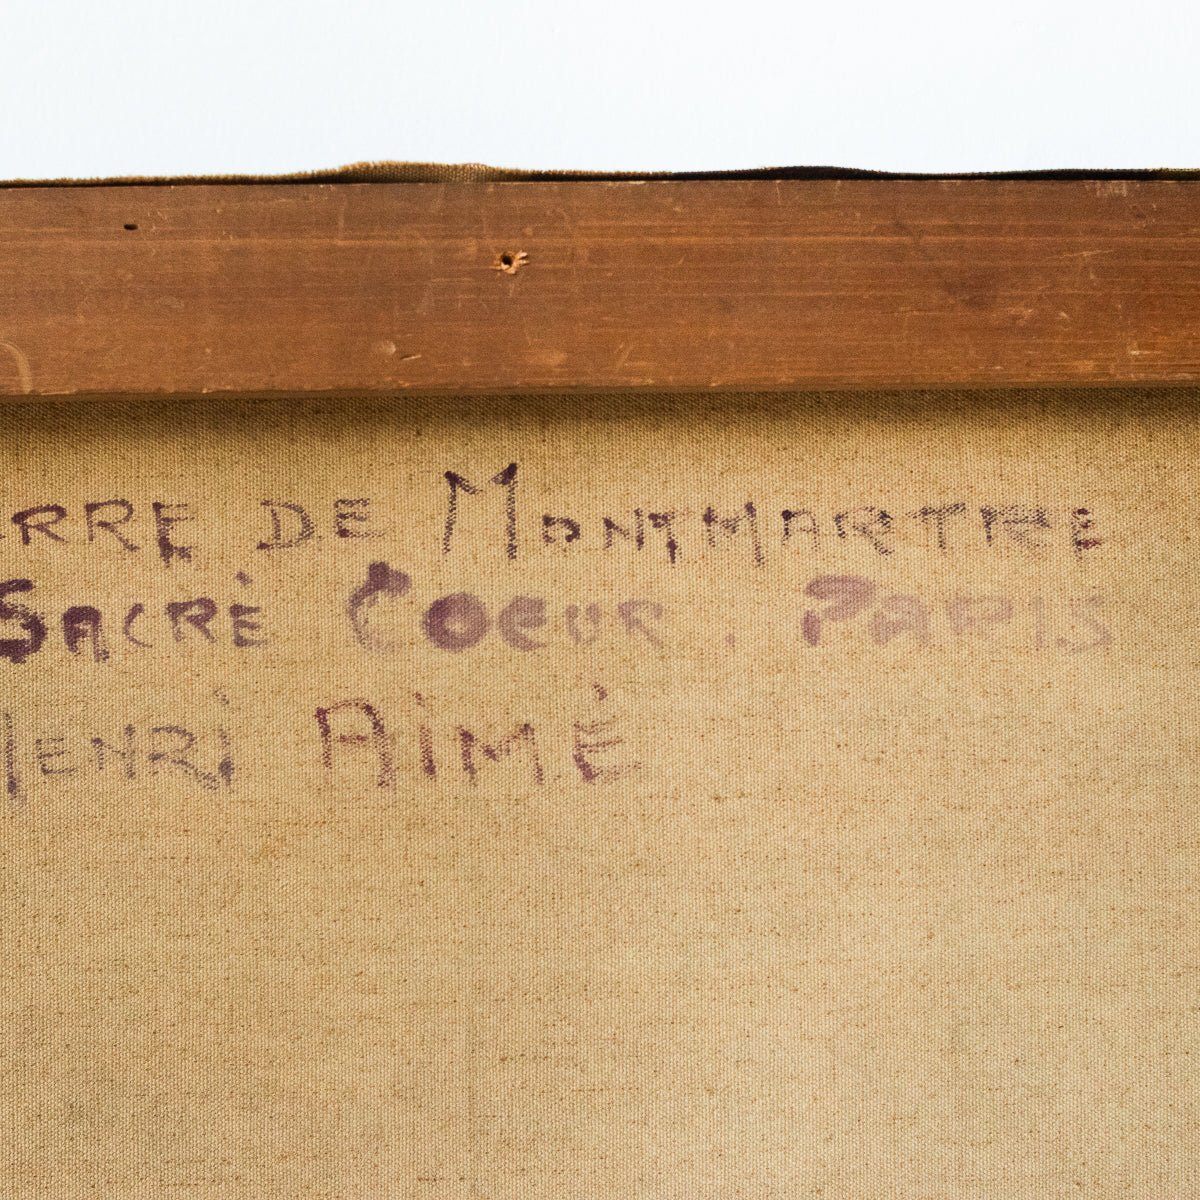 RRE DE MONTMARTRE
SACRÉ COEUR. PARIS
HENRI AIMÉ